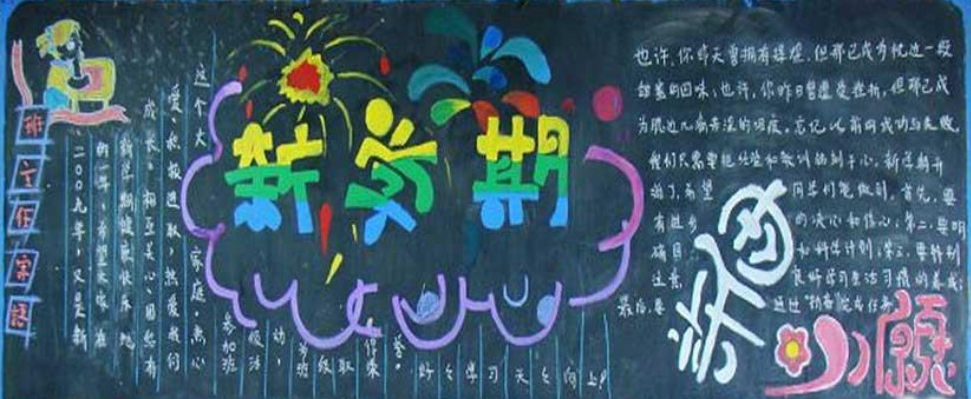 班主任寄语
二00九年，又是新
的一年，希望大家在
新学期健康快乐地
成长，相互关心，团结友
爱，积极进取，热爱我们
这个大家庭，热心
参加班
级活
动，
为班级取得荣誉。
好好学习天天向上！
新学期
也许，你昨天曾拥有辉煌，但那已成为枕边一段
甜蜜的回味；也许，你昨日曾遭受挫折，但那已成
为腮边几滴苦涩的泪痕。忘记以前的成功与失败，
我们只需要把经验和教训铭刻于心。新学期开
始了，希望 同学们能做到：首先，要
有进步 的决心和信心；第二，要明
确目 和科学计划；第三，要特别
注意 良好学习生活习惯的养成；
最后，要 通过 完成任务
心愿